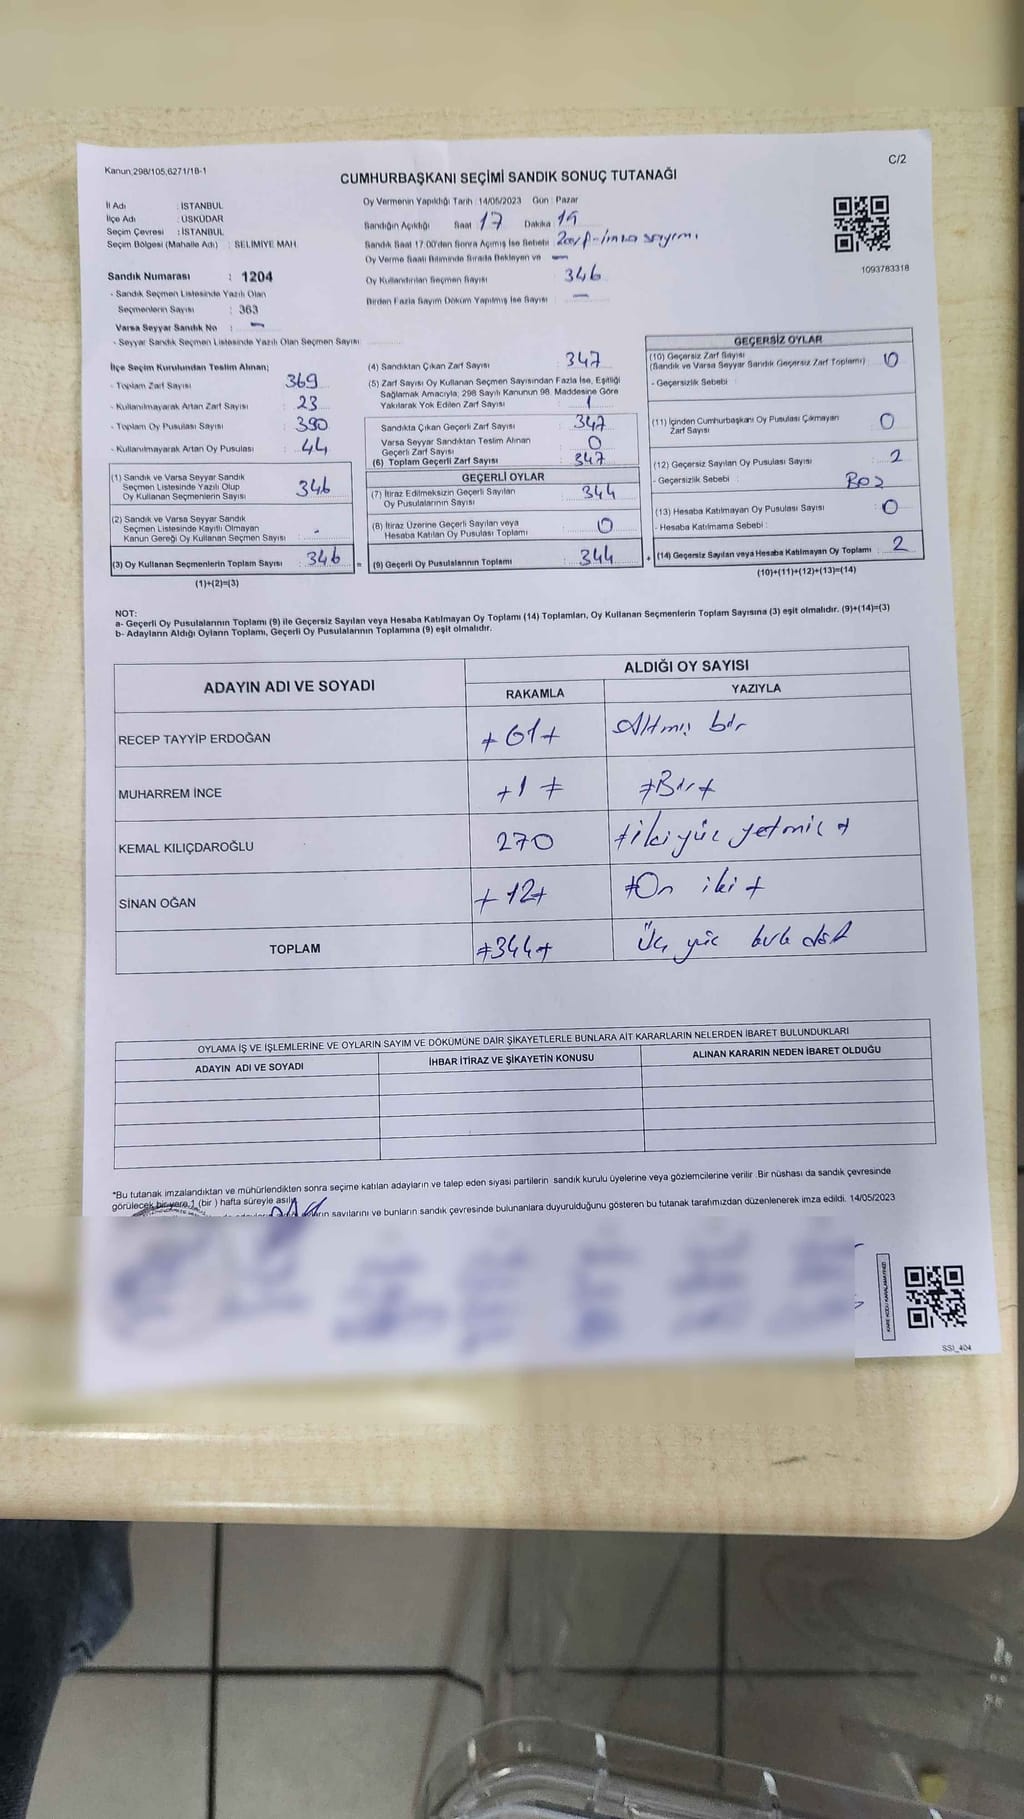 Kanun,298/105,6271/18-1
C/2
CUMHURBAŞKANI SEÇİMİ SANDIK SONUÇ TUTANAĞI
İl Adı : İSTANBUL
İlçe Adı : ÜSKÜDAR
Seçim Çevresi : İSTANBUL
Seçim Bölgesi (Mahalle Adı) : SELİMİYE MAH.
Sandık Numarası : 1204
- Sandık Seçmen Listesinde Yazılı Olan
Seçmenlerin Sayısı : 363
Varsa Seyyar Sandık No : -
- Seyyar Sandık Seçmen Listesinde Yazılı Olan Seçmen Sayısı
Oy Vermenin Yapıldığı Tarih : 14/05/2023 Gün : Pazar
Sandığın Açıldığı Saat 17 Dakika 19
Sandık Saat 17.00'den Sonra Açılmış İse Sebebi Zarf-imza sayımı
Oy Verme Saati Bitiminde Sırada Bekleyen ve -
Oy Kullandırılan Seçmen Sayısı 346
Birden Fazla Sayım Döküm Yapılmış İse Sayısı -
1093783318
İlçe Seçim Kurulundan Teslim Alınan;
- Toplam Zarf Sayısı 369
- Kullanılmayarak Artan Zarf Sayısı 23
- Toplam Oy Pusulası Sayısı 390
- Kullanılmayarak Artan Oy Pusulası 44
(1) Sandık ve Varsa Seyyar Sandık
Seçmen Listesinde Yazılı Olup
Oy Kullanan Seçmenlerin Sayısı : 346
(2) Sandık ve Varsa Seyyar Sandık
Seçmen Listesinde Kayıtlı Olmayan
Kanun Gereği Oy Kullanan Seçmen Sayısı : -
(3) Oy Kullanan Seçmenlerin Toplam Sayısı : 346
(1)+(2)=(3)
(4) Sandıktan Çıkan Zarf Sayısı 347
(5) Zarf Sayısı Oy Kullanan Seçmen Sayısından Fazla İse, Eşitliği
Sağlamak Amacıyla, 298 Sayılı Kanunun 98. Maddesine Göre
Yakılarak Yok Edilen Zarf Sayısı 1
Sandıkta Çıkan Geçerli Zarf Sayısı : 347
Varsa Seyyar Sandıktan Teslim Alınan
Geçerli Zarf Sayısı : 0
(6) Toplam Geçerli Zarf Sayısı : 347
GEÇERLİ OYLAR
(7) İtiraz Edilmeksizin Geçerli Sayılan
Oy Pusulalarının Sayısı : 344
(8) İtiraz Üzerine Geçerli Sayılan veya
Hesaba Katılan Oy Pusulası Toplamı : 0
= (9) Geçerli Oy Pusulalarının Toplamı : 344
GEÇERSİZ OYLAR
(10) Geçersiz Zarf Sayısı
(Sandık ve Varsa Seyyar Sandık Geçersiz Zarf Toplamı) : 0
- Geçersizlik Sebebi :
(11) İçinden Cumhurbaşkanı Oy Pusulası Çıkmayan
Zarf Sayısı : 0
(12) Geçersiz Sayılan Oy Pusulası Sayısı : 2
- Geçersizlik Sebebi : Boş
(13) Hesaba Katılmayan Oy Pusulası Sayısı : 0
- Hesaba Katılmama Sebebi :
+ (14) Geçersiz Sayılan veya Hesaba Katılmayan Oy Toplamı : 2
(10)+(11)+(12)+(13)=(14)
NOT:
a- Geçerli Oy Pusulalarının Toplamı (9) ile Geçersiz Sayılan veya Hesaba Katılmayan Oy Toplamı (14) Toplamları, Oy Kullanan Seçmenlerin Toplam Sayısına (3) eşit olmalıdır. (9)+(14)=(3)
b- Adayların Aldığı Oyların Toplamı, Geçerli Oy Pusulalarının Toplamına (9) eşit olmalıdır.
ADAYIN ADI VE SOYADI
ALDIĞI OY SAYISI
RAKAMLA YAZIYLA
RECEP TAYYİP ERDOĞAN + 61 + Altmış bir
MUHARREM İNCE + 1 + + Bir +
KEMAL KILIÇDAROĞLU 270 + iki yüz yetmiş +
SİNAN OĞAN + 12 + + On iki +
TOPLAM + 344 + Üç yüz kırk dört
OYLAMA İŞ VE İŞLEMLERİNE VE OYLARIN SAYIM VE DÖKÜMÜNE DAİR ŞİKAYETLERLE BUNLARA AİT KARARLARIN NELERDEN İBARET BULUNDUKLARI
ADAYIN ADI VE SOYADI İHBAR İTİRAZ VE ŞİKAYETİN KONUSU ALINAN KARARIN NEDEN İBARET OLDUĞU
*Bu tutanak imzalandıktan ve mühürlendikten sonra seçime katılan adayların ve talep eden siyasi partilerin sandık kurulu üyelerine veya gözlemcilerine verilir. Bir nüshası da sandık çevresinde
görülecek bir yere 1 (bir ) hafta süreyle asılır.
sayılarını ve bunların sandık çevresinde bulunanlara duyurulduğunu gösteren bu tutanak tarafımızdan düzenlenerek imza edildi. 14/05/2023
SSI_404